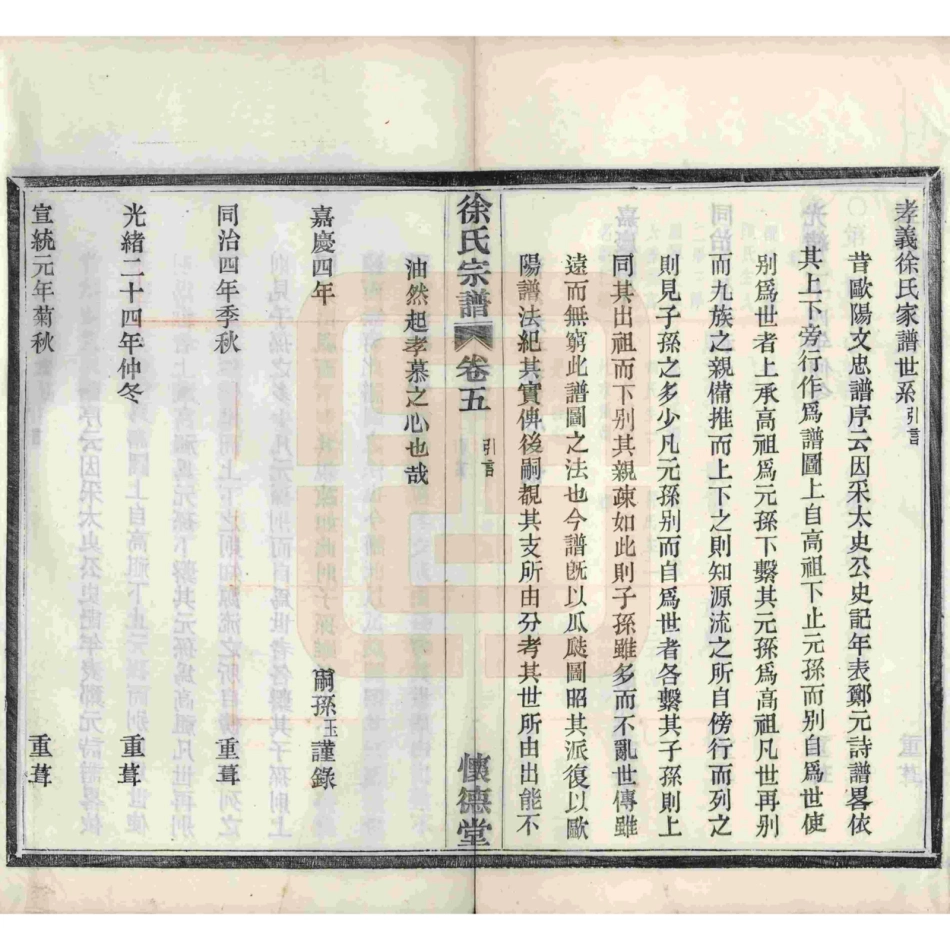 孝義徐氏家譜世系引言
昔歐陽文忠譜序云因采太史公史記年表鄭元詩譜畧依
其上下旁行作爲譜圖上自高祖下止元孫而别自爲世使
别爲世者上承高祖爲元孫下繫其元孫爲高祖凡世再别
而九族之親備推而上下之則知源流之所自傍行而列之
則見子孫之多少凡元孫别而自爲世者各繫其子孫則上
同其出祖而下别其親疎如此則子孫雖多而不亂世傳雖
遠而無窮此譜圖之法也今譜旣以瓜瓞圖昭其派復以歐
陽譜法紀其實俾後嗣覩其支所由分考其世所由出能不
徐氏宗譜 卷五 引言 懷德堂
油然起孝慕之心也哉
嘉慶四年 嗣孫玉謹錄
同治四年季秋 重葺
光緒二十四年仲冬 重葺
宣統元年菊秋 重葺